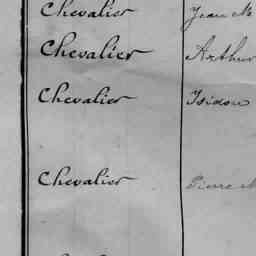 Chevalier Jean M
Chevalier Arthur
Chevalier Isidou
Chevalier Pierre M